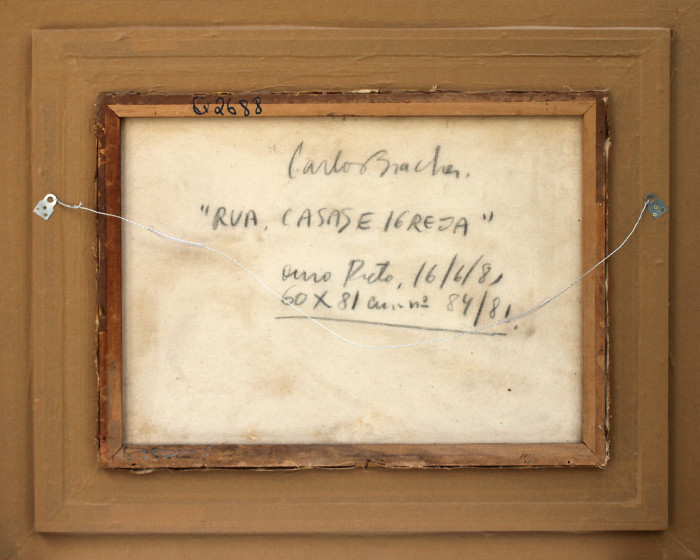 Q2688
Carlos Bracher.
"RUA, CASAS E IGREJA"
Ouro Preto, 16/6/81
60 X 81 cm. nº 84/81.